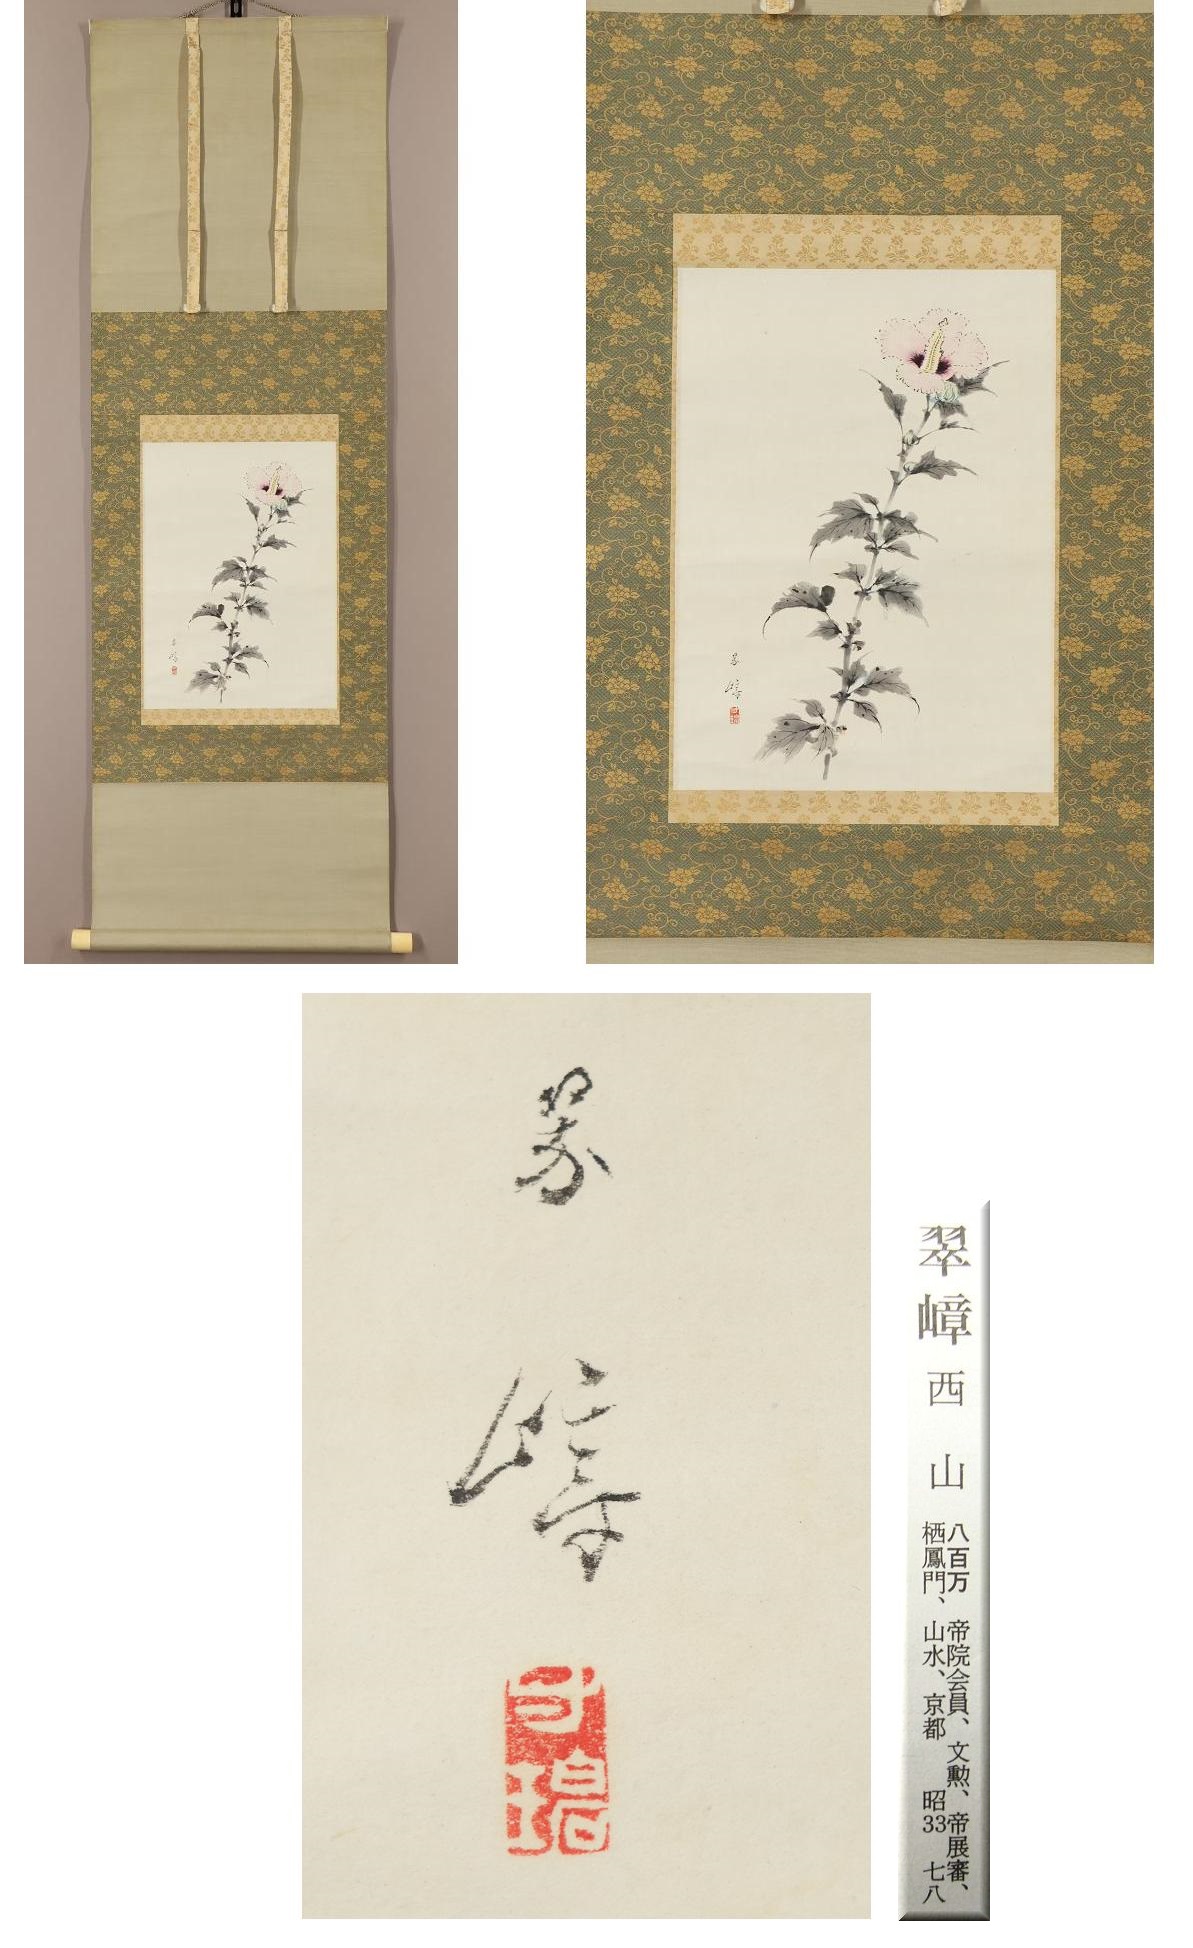 翠嶂
翠嶂
西山
八百万 帝院会員、文勲、帝展審、
栖鳳門、山水、京都 昭33 七八